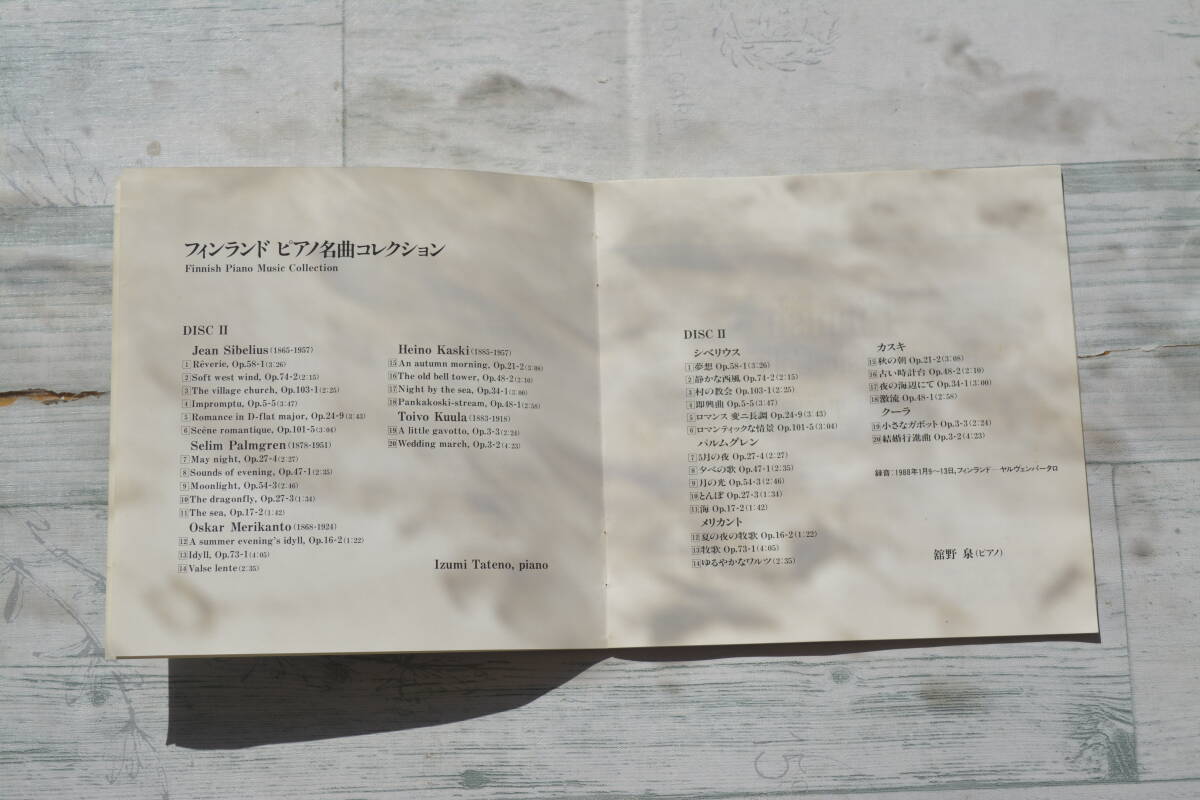 フィンランド ピアノ名曲コレクション
Finnish Piano Music Collection
DISC II
Jean Sibelius(1865-1957)
1 Rêverie, Op.58-1(3:26)
2 Soft west wind, Op.74-2(2:15)
3 The village church, Op.103-1(2:25)
4 Impromptu, Op.5-5(3:47)
5 Romance in D-flat major, Op.24-9(3:43)
6 Scène romantique, Op.101-5(3:04)
Selim Palmgren(1878-1951)
7 May night, Op.27-4(2:27)
8 Sounds of evening, Op.47-1(2:35)
9 Moonlight, Op.54-3(2:46)
10 The dragonfly, Op.27-3(1:34)
11 The sea, Op.17-2(1:42)
Oskar Merikanto(1868-1924)
12 A summer evening's idyll, Op.16-2(1:22)
13 Idyll, Op.73-1(4:05)
14 Valse lente(2:35)
Heino Kaski(1885-1957)
15 An autumn morning, Op.21-2(3:08)
16 The old bell tower, Op.48-2(2:10)
17 Night by the sea, Op.34-1(3:00)
18 Pankakoski-stream, Op.48-1(2:58)
Toivo Kuula(1883-1918)
19 A little gavotto, Op.3-3(2:24)
20 Wedding march, Op.3-2(4:23)
Izumi Tateno, piano
DISC II
シベリウス
1 夢想 Op.58-1(3:26)
2 静かな西風 Op.74-2(2:15)
3 村の教会 Op.103-1(2:25)
4 即興曲 Op.5-5(3:47)
5 ロマンス 変ニ長調 Op.24-9(3:43)
6 ロマンティックな情景 Op.101-5(3:04)
パルムグレン
7 5月の夜 Op.27-4(2:27)
8 夕べの歌 Op.47-1(2:35)
9 月の光 Op.54-3(2:46)
10 とんぼ Op.27-3(1:34)
11 海 Op.17-2(1:42)
メリカント
12 夏の夜の牧歌 Op.16-2(1:22)
13 牧歌 Op.73-1(4:05)
14 ゆるやかなワルツ(2:35)
カスキ
15 秋の朝 Op.21-2(3:08)
16 古い時計台 Op.48-2(2:10)
17 夜の海辺にて Op.34-1(3:00)
18 激流 Op.48-1(2:58)
クーラ
19 小さなガボット Op.3-3(2:24)
20 結婚行進曲 Op.3-2(4:23)
録音:1988年1月9〜13日,フィンランド―ヤルヴェンパータロ
舘野 泉(ピアノ)